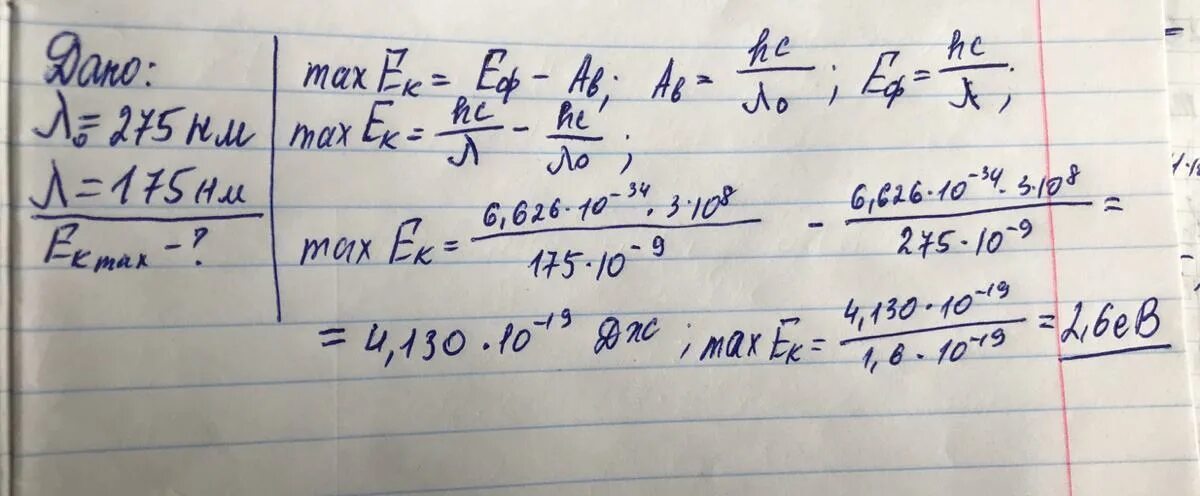 Дано:
λ₀ = 275 нм
λ = 175 нм
Eк max - ?
max Eк = Eф - Aв; Aв = hc/λ₀; Eф = hc/λ;
max Eк = hc/λ - hc/λ₀;
max Eк = 6,626·10⁻³⁴·3·10⁸/175·10⁻⁹ - 6,626·10⁻³⁴·3·10⁸/275·10⁻⁹ =
= 4,130·10⁻¹⁹ Дж; max Eк = 4,130·10⁻¹⁹/1,6·10⁻¹⁹ = 2,6 еВ